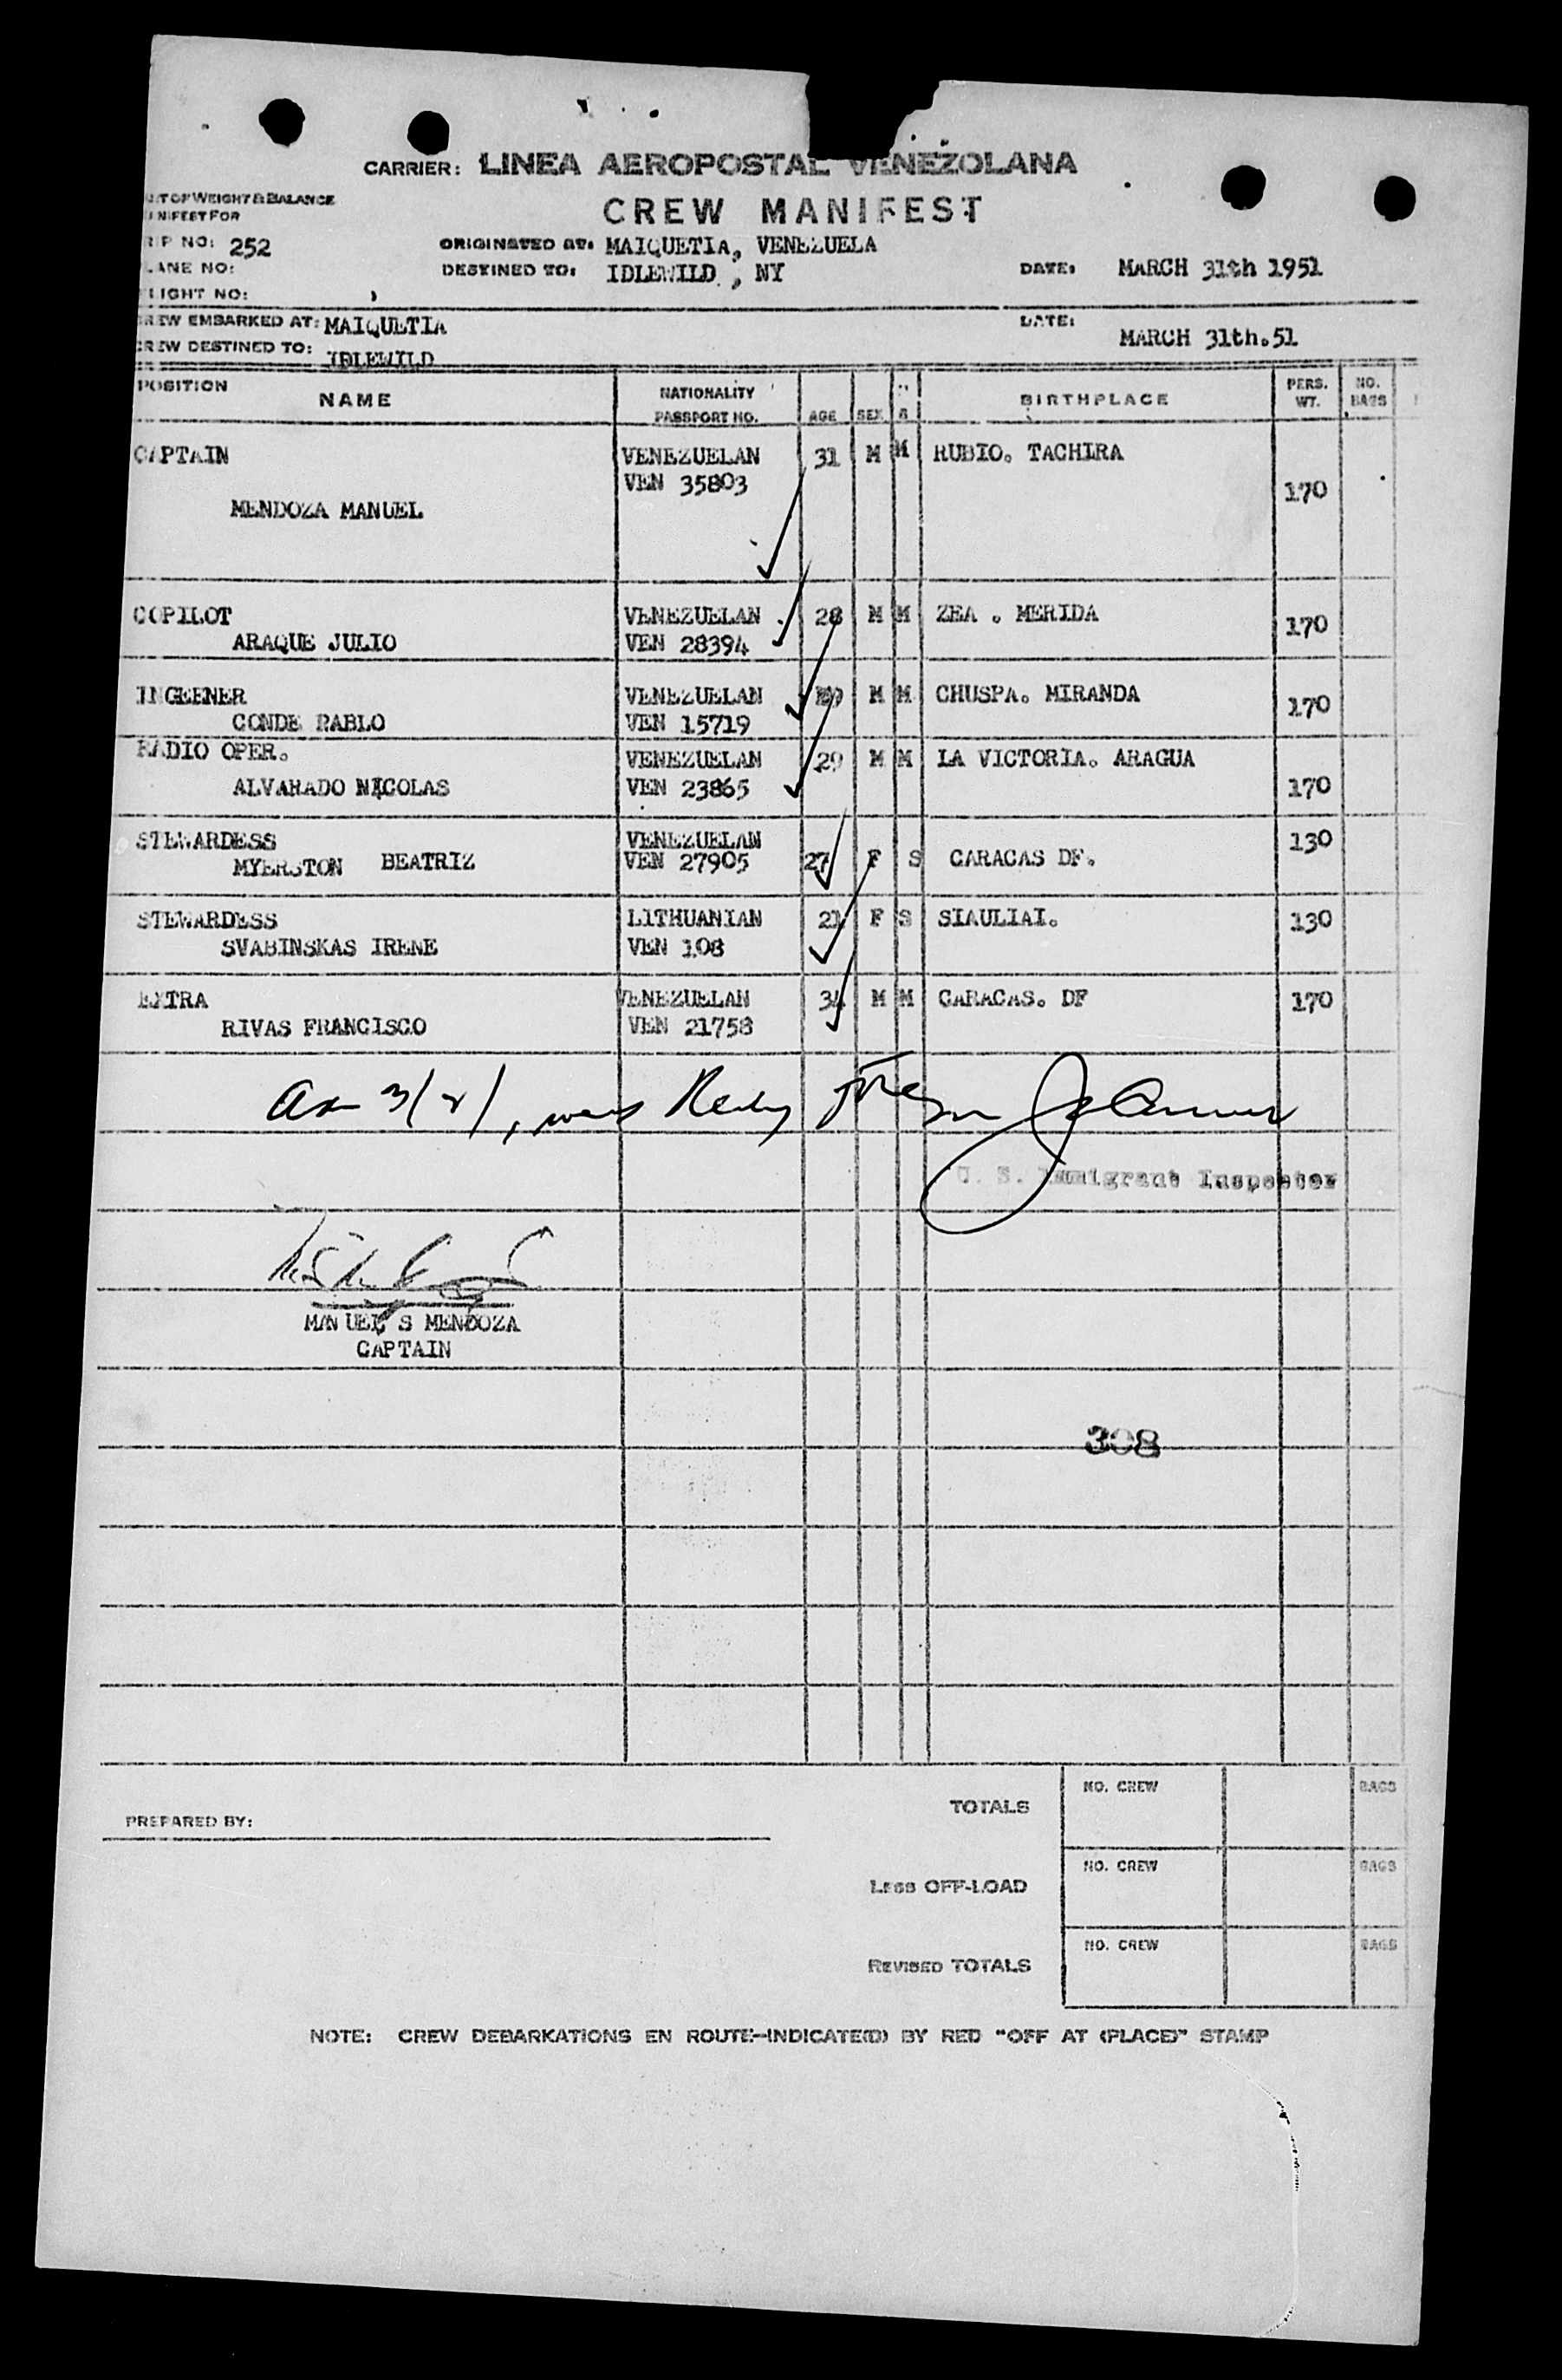 CARRIER: LINEA AEROPOSTAL VENEZOLANA
CREW MANIFEST
WEIGHT & BALANCE
FOR
NO: 252
ORIGINATED AT: MAIQUETIA, VENEZUELA
NO:
DESTINED TO: IDLEWILD, NY
DATE: MARCH 31th 1951
LIGHT NO:
EMBARKED AT: MAIQUETIA
DATE: MARCH 31th.51
DESTINED TO: IDLEWILD
POSITION NAME NATIONALITY PASSPORT NO. AGE SEX BIRTHPLACE PERS. WT. NO. BAGS
CAPTAIN VENEZUELAN 31 M M RUBIO. TACHIRA
VEN 35803 170
MENDOZA MANUEL
COPILOT VENEZUELAN 28 M M ZEA . MERIDA 170
ARAQUE JULIO VEN 28394
INGEENER VENEZUELAN M M CHUSPA. MIRANDA 170
CONDE PABLO VEN 15719
RADIO OPER. VENEZUELAN 29 M M LA VICTORIA. ARAGUA
ALVARADO NICOLAS VEN 23865 170
STEWARDESS VENEZUELAN 130
MYERSTON BEATRIZ VEN 27905 27 F S CARACAS DF.
STEWARDESS LITHUANIAN 21 F S SIAULIAI. 130
SVABINSKAS IRENE VEN 108
EXTRA VENEZUELAN 34 M M CARACAS. DF 170
RIVAS FRANCISCO VEN 21758
U. S. Immigrant Inspector
MANUEL S MENDOZA
CAPTAIN
308
PREPARED BY:
TOTALS NO. CREW BAGS
LESS OFF-LOAD NO. CREW BAGS
REVISED TOTALS NO. CREW BAGS
NOTE: CREW DEBARKATIONS EN ROUTE-INDICATE(D) BY RED "OFF AT (PLACE)" STAMP